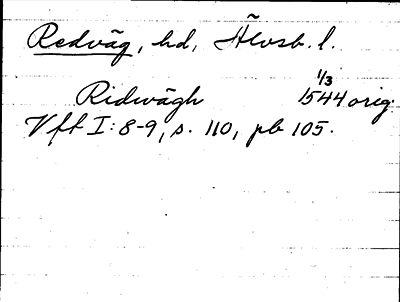 Redväg, hd, Älvsb. l.
Ridwägh 1/3 1544 orig.
Vft I: 8-9, s. 110, pb 105.